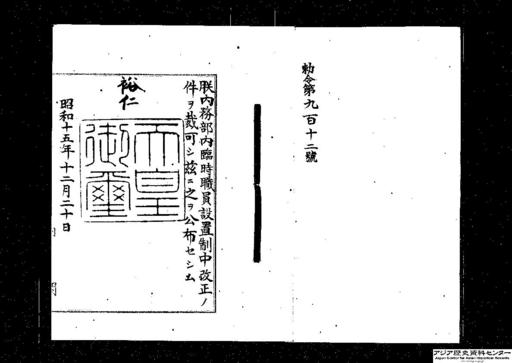 勅令第九百十二號
朕内務部内臨時職員設置制中改正ノ
件ヲ裁可シ茲ニ之ヲ公布セシム
裕仁
天皇
御璽
昭和十五年十二月二十日
アジア歴史資料センター
Japan Center for Asian Historical Records